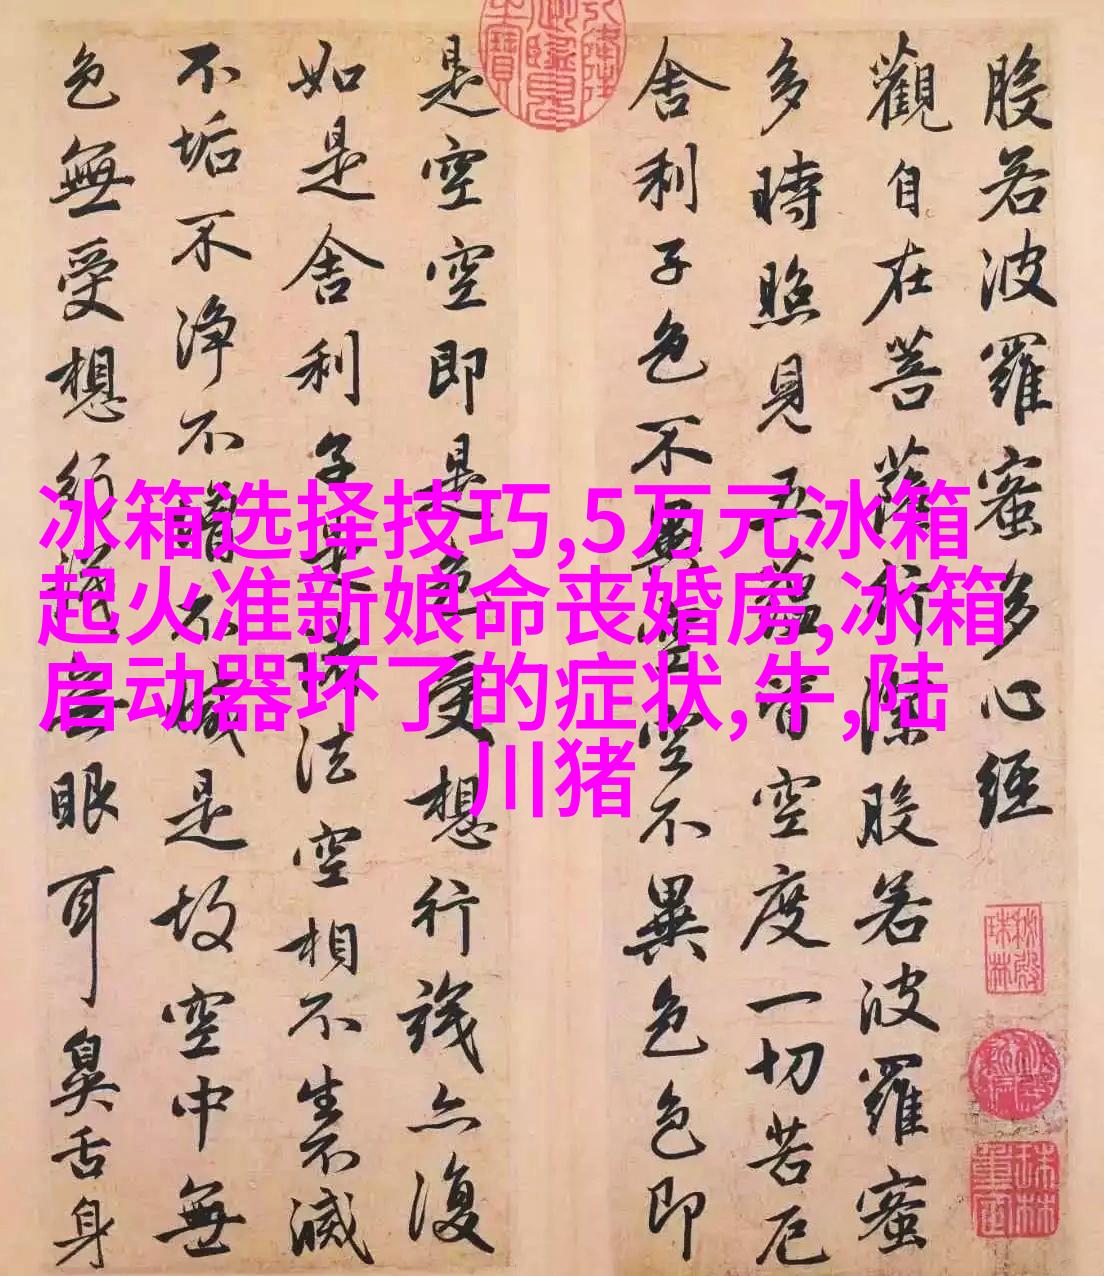 般若波羅蜜多心經
觀自在菩薩行深般若波羅蜜
多時照見五蘊皆空度一切苦厄
舍利子色不異空空不異色色即
是空空即是色受想行識亦復
如是舍利子是諸法空相不生不滅
不垢不净不增不減是故空中無
色無受想行識無眼耳鼻舌身
冰箱选择技巧,5万元冰箱
起火准新娘命丧婚房,冰箱
启动器坏了的症状,牛,陆
川猪